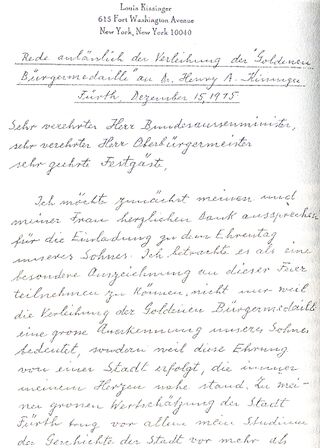 Louis Kissinger
615 Fort Washington Avenue
New York, New York 10040
Rede anläßlich der Verleihung der "Goldenen
Bürgermedaille" an Dr. Henry A. Kissinger
Fürth, Dezember 15, 1975
Sehr verehrter Herr Bundesaussenminister,
sehr verehrter Herr Oberbürgermeister
sehr geehrte Festgäste,
Ich möchte zunächst meinen und
meiner Frau herzlichen Dank aussprechen
für die Einladung zu dem Ehrentag
unseres Sohnes. Ich betrachte es als eine
besondere Auszeichnung an dieser Feier
teilnehmen zu können, nicht nur weil
die Verleihung der Goldenen Bürgermedaille
eine grosse Anerkennung unseres Sohnes
bedeutet, sondern weil diese Ehrung
von einer Stadt erfolgt, die immer
meinem Herzen nahe stand. Zu mei-
ner grossen Wertschätzung der Stadt
Fürth trug vor allem mein Studium
der Geschichte der Stadt vor mehr als